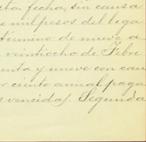 cha fecha, sin causa
e mil pesos del lega
término de nueve a
veintiocho de Febre
enta y nueve con cau
r ciento anual paga
s vencidas. Segunda